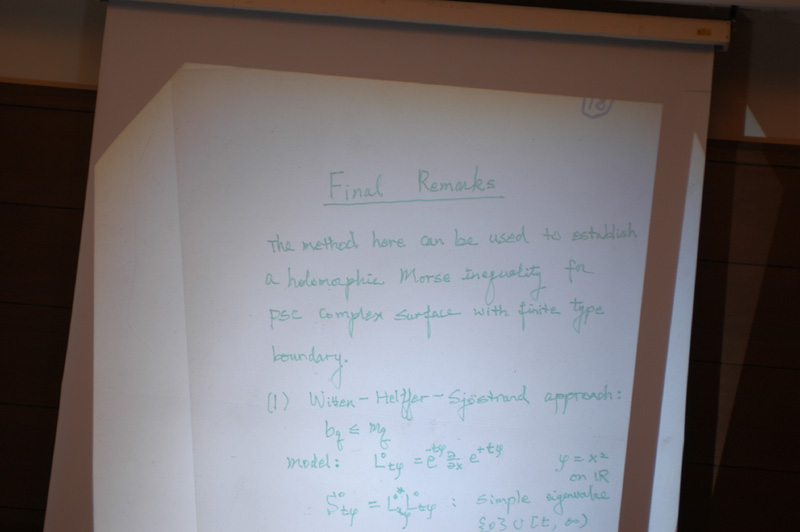 18
Final Remarks
The method here can be used to establish
a holomorphic Morse Inequality for
psc complex surface with finite type
boundary.
(1) Witten-Helffer-Sjöstrand approach:
b_q ≤ m_q
model: L°_{tφ} = e^{-tφ} ∂/∂x e^{+tφ} φ = x²
on ℝ
S°_{tφ} = L°*_{tφ} L°_{tφ} : simple eigenvalue
{0} ∪ [t, ∞)